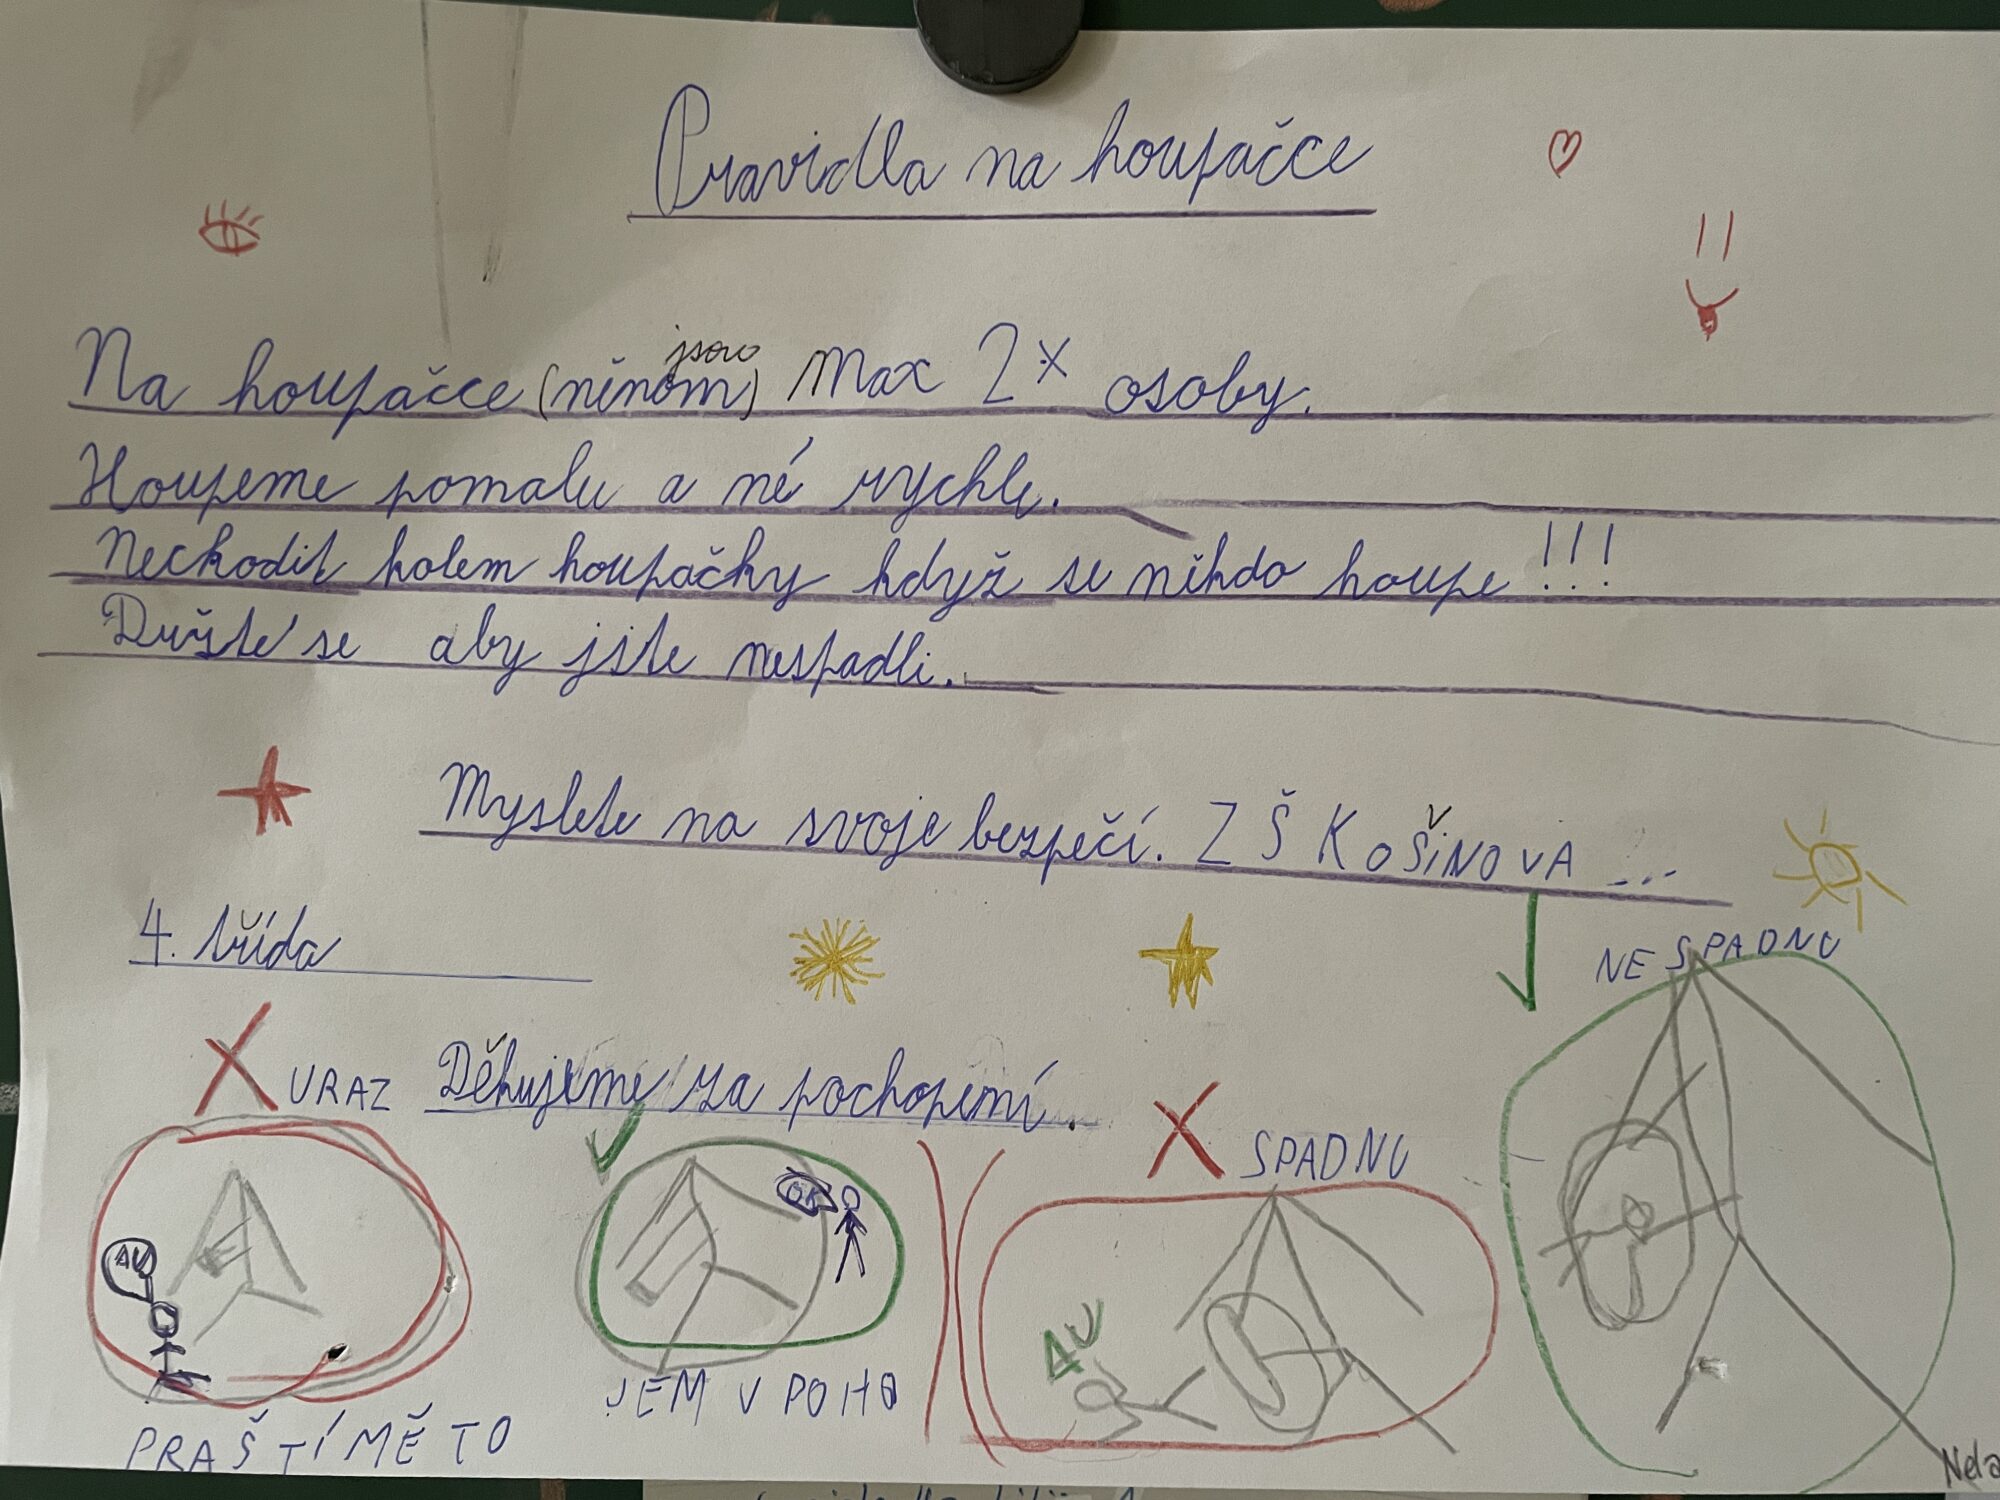 Pravidla na houpačce
jsou
Na houpačce (něnom) Max 2x osoby.
Houpeme pomalu a né rychle.
Nechodit kolem houpačky když se někdo houpe!!!
Držte se aby jste nespadli.
Myslete na svoje bezpečí. ZŠ KOŠINOVA ...
4. třída
NESPADNU
URAZ Děkujeme za pochopení.
SPADNU
OK
AU
AU
JEM V POHO
PRAŠTÍ MĚ TO
Nela